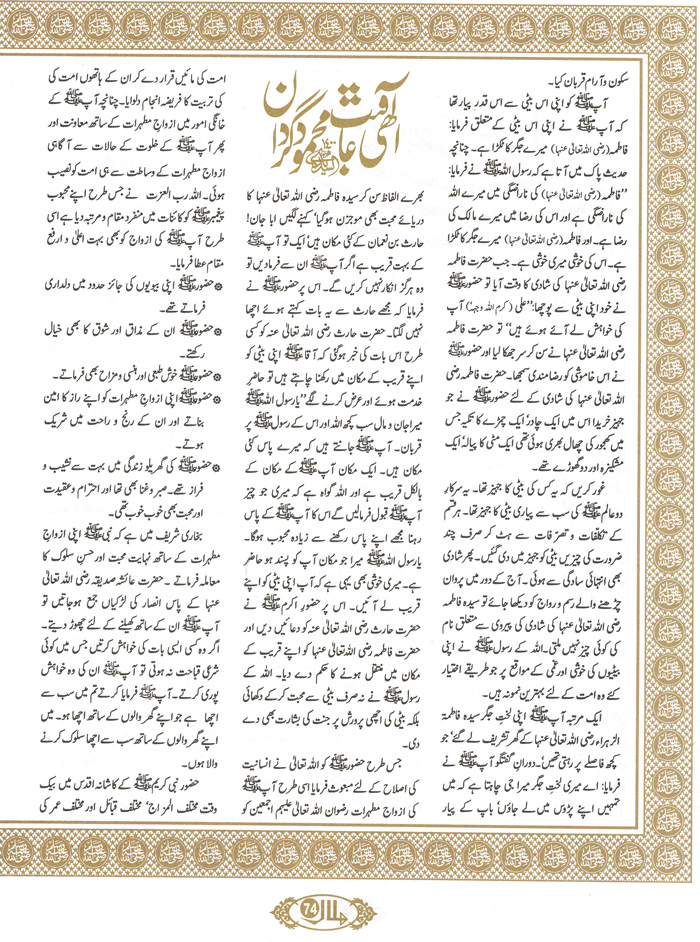 سکون و آرام قربان کیا۔
آپﷺ کو اپنی اس بیٹی سے اس قدر پیار تھا
کہ آپﷺ نے اپنی اس بیٹی کے متعلق فرمایا:
فاطمہ (رضی اللہ تعالٰی عنہا) میرے جگر کا ٹکڑا ہے۔ چنانچہ
حدیث پاک میں آتا ہے کہ رسول اللہﷺ نے فرمایا:
”فاطمہ (رضی اللہ تعالٰی عنہا) کی ناراضگی میں میرے اللہ
کی ناراضگی ہے اور اس کی رضا میں میرے مالک کی
رضا ہے۔ اور فاطمہ (رضی اللہ تعالٰی عنہا) میرے جگر کا ٹکڑا
ہے۔ اس کی خوشی میری خوشی ہے۔ جب حضرت فاطمہ
رضی اللہ تعالٰی عنہا کی شادی کا وقت آیا تو حضورﷺ
نے خود اپنی بیٹی سے پوچھا: ”علی (کرم اللہ وجہہ) آپ
کی خواہش لے آئے ہوئے ہیں“ تو حضرت فاطمہ
رضی اللہ تعالٰی عنہا نے سن کر سر جھکا لیا اور حضورﷺ
نے اس خاموشی کو رضامندی سمجھا۔ حضرت فاطمہ رضی
اللہ تعالٰی عنہا کی شادی کے لئے حضورﷺ نے جو
جہیز خریدا اس میں ایک چادر‘ ایک چمڑے کا تکیہ جس
میں کھجور کی چھال بھری ہوئی تھی‘ ایک مٹی کا پیالہ‘ ایک
مشکیزہ اور دو گھوڑے تھے۔
غور کریں کہ یہ کس کی بیٹی کا جہیز تھا۔ یہ سرکارِ
دو عالمﷺ کی سب سے پیاری بیٹی کا جہیز تھا۔ ہر قسم
کے تکلفات و تصرفات سے ہٹ کر صرف چند
ضرورت کی چیزیں بیٹی کو جہیز میں دی گئیں۔ پھر شادی
بھی انتہائی سادگی سے ہوئی۔ آج کے دور میں پروان
چڑھنے والے رسم و رواج کو دیکھا جائے تو سیدہ فاطمہ
رضی اللہ تعالٰی عنہا کی شادی کی پیروی سے متعلق نام
کی کوئی چیز نہیں ملتی۔ اللہ کے رسولﷺ نے اپنی
بیٹیوں کی خوشی اور غمی کے مواقع پر جو طریقے اختیار
کئے وہ امت کے لئے بہترین نمونہ ہیں۔
ایک مرتبہ آپﷺ اپنی لختِ جگر سیدہ فاطمۃ
الزہراء رضی اللہ تعالٰی عنہا کے گھر تشریف لے گئے‘ جو
کچھ فاصلے پر رہتی تھیں۔ دورانِ گفتگو آپﷺ نے
فرمایا: اے میری لختِ جگر میرا جی چاہتا ہے کہ میں
تمہیں اپنے پڑوس میں لے جاؤں‘ باپ کے پیار
الٰہی عاقبت محمود گرداں
بھرے الفاظ سن کر سیدہ فاطمہ رضی اللہ تعالٰی عنہا کا
دریائے محبت بھی موجزن ہو گیا‘ کہنے لگیں ابا جان!
حارث بن نعمان کے کئی مکان ہیں‘ ایک تو آپﷺ
کے بہت قریب ہے اگر آپﷺ ان سے فرما دیں تو
وہ ہرگز انکار نہیں کریں گے۔ اس پر حضورﷺ نے
فرمایا کہ مجھے حارث سے یہ بات کہتے ہوئے اچھا
نہیں لگتا۔ حضرت حارث رضی اللہ تعالٰی عنہ کو کسی
طرح اس بات کی خبر ہو گئی کہ آقاﷺ اپنی بیٹی کو
اپنے قریب کے مکان میں رکھنا چاہتے ہیں تو حاضرِ
خدمت ہوئے اور عرض کرنے لگے ”یا رسول اللہﷺ
میرا جان و مال سب کچھ اللہ اور اس کے رسولﷺ پر
قربان۔ آپﷺ جانتے ہیں کہ میرے پاس کئی
مکان ہیں۔ ایک مکان آپﷺ کے مکان کے
بالکل قریب ہے اور اللہ گواہ ہے کہ میری جو چیز
آپﷺ قبول فرما لیں گے اس کا آپﷺ کے پاس
رہنا مجھے اپنے پاس رکھنے سے زیادہ محبوب ہو گا۔
یا رسول اللہﷺ میرا جو مکان آپ کو پسند ہو حاضر
ہے۔ میری خوشی بھی یہی ہے کہ آپ اپنی بیٹی کو اپنے
قریب لے آئیں۔ اس پر حضورِ اکرمﷺ نے
حضرت حارث رضی اللہ تعالٰی عنہ کو دعائیں دیں اور
حضرت فاطمہ رضی اللہ تعالٰی عنہا کو اپنے قریب کے
مکان میں منتقل ہونے کا حکم دے دیا۔ اللہ کے
رسولﷺ نے نہ صرف بیٹی سے محبت کر کے دکھائی
بلکہ بیٹی کی اچھی پرورش پر جنت کی بشارت بھی دے
دی۔
جس طرح حضورﷺ کو اللہ تعالٰی نے انسانیت
کی اصلاح کے لئے مبعوث فرمایا اسی طرح آپﷺ
کی ازواجِ مطہرات رضوان اللہ تعالٰی علیہم اجمعین کو
امت کی مائیں قرار دے کر ان کے ہاتھوں امت کی
کی تربیت کا فریضہ انجام دلوایا۔ چنانچہ آپﷺ کے
خانگی امور میں ازواجِ مطہرات کے ساتھ معاونت اور
پھر آپﷺ کے خلوت کے حالات سے آگاہی
ازواجِ مطہرات کے وساطت سے ہی امت کو نصیب
ہوئی۔ اللہ رب العزت نے جس طرح اپنے محبوب
پیغمبرﷺ کو کائنات میں منفرد مقام و مرتبہ دیا ہے اسی
طرح آپﷺ کی ازواج کو بھی بہت اعلٰی و ارفع
مقام عطا فرمایا۔
❁ حضورﷺ اپنی بیویوں کی جائز حدود میں دلداری
فرماتے تھے۔
❁ حضورﷺ ان کے مذاق اور شوق کا بھی خیال
رکھتے۔
❁ حضورﷺ خوش طبعی اور ہنسی و مزاح بھی فرماتے۔
❁ حضورﷺ اپنی ازواجِ مطہرات کو اپنے راز کا امین
بناتے اور ان کے رنج و راحت میں شریک
ہوتے۔
❁ حضورﷺ کی گھریلو زندگی میں بہت سے نشیب و
فراز تھے۔ صبر و غنا بھی تھا اور احترام و عقیدت
اور محبت بھی خوب خوب تھی۔
بخاری شریف میں ہے کہ نبیﷺ اپنی ازواجِ
مطہرات کے ساتھ نہایت محبت اور حسنِ سلوک کا
معاملہ فرماتے۔ حضرت عائشہ صدیقہ رضی اللہ تعالٰی
عنہا کے پاس انصار کی لڑکیاں جمع ہو جاتیں تو
آپﷺ ان کے ساتھ کھیلنے کے لئے چھوڑ دیتے۔
اگر وہ کسی ایسی بات کی خواہش کرتیں جس میں کوئی
شرعی قباحت نہ ہوتی تو آپﷺ ان کی وہ خواہش
پوری کرتے۔ آپﷺ فرمایا کرتے تم میں سب سے
اچھا ہے جو اپنے گھر والوں کے ساتھ اچھا ہو۔ میں
اپنے گھر والوں کے ساتھ سب سے اچھا سلوک کرنے
والا ہوں۔
حضور نبی کریمﷺ کے کاشانہ اقدس میں بیک
وقت مختلف المزاج‘ مختلف قبائل اور مختلف عمر کی
ہلال 74